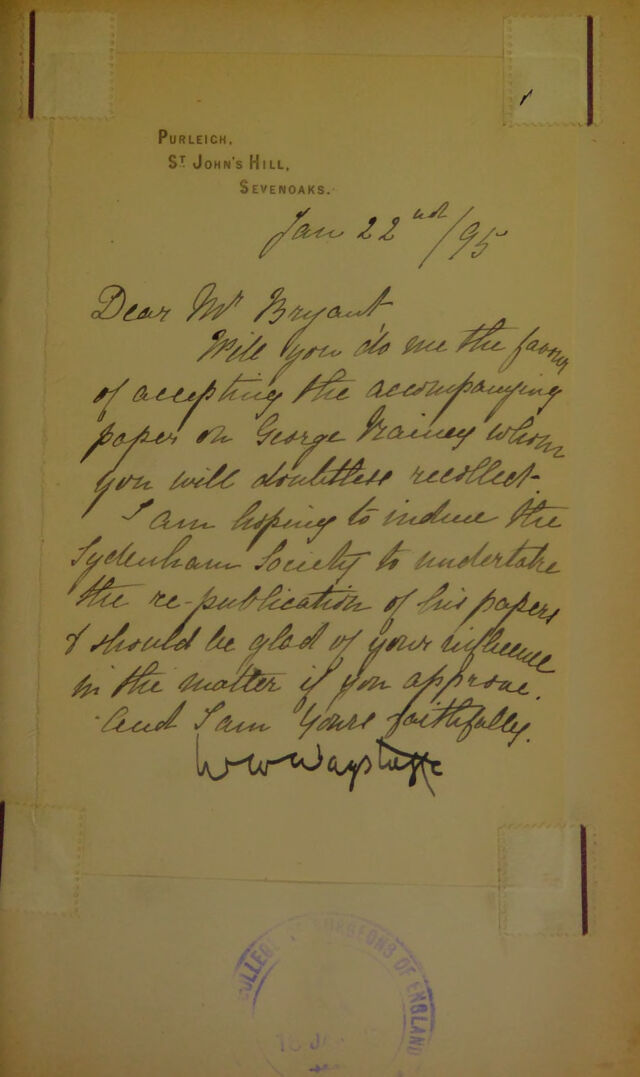 PURLEIGH,
ST JOHN'S HILL,
SEVENOAKS.
Jan 22nd/95
Dear Mr Bryant
Will you do me the favour
of accepting the accompanying
paper on George Rainey whom
you will doubtless recollect.
I am hoping to induce the
Sydenham Society to undertake
the re-publication of his papers
& should be glad of your influence
in the matter if you approve.
And I am Yours faithfully.
W W Wagstaffe
COLLEGE OF SURGEONS OF ENGLAND
18 JA